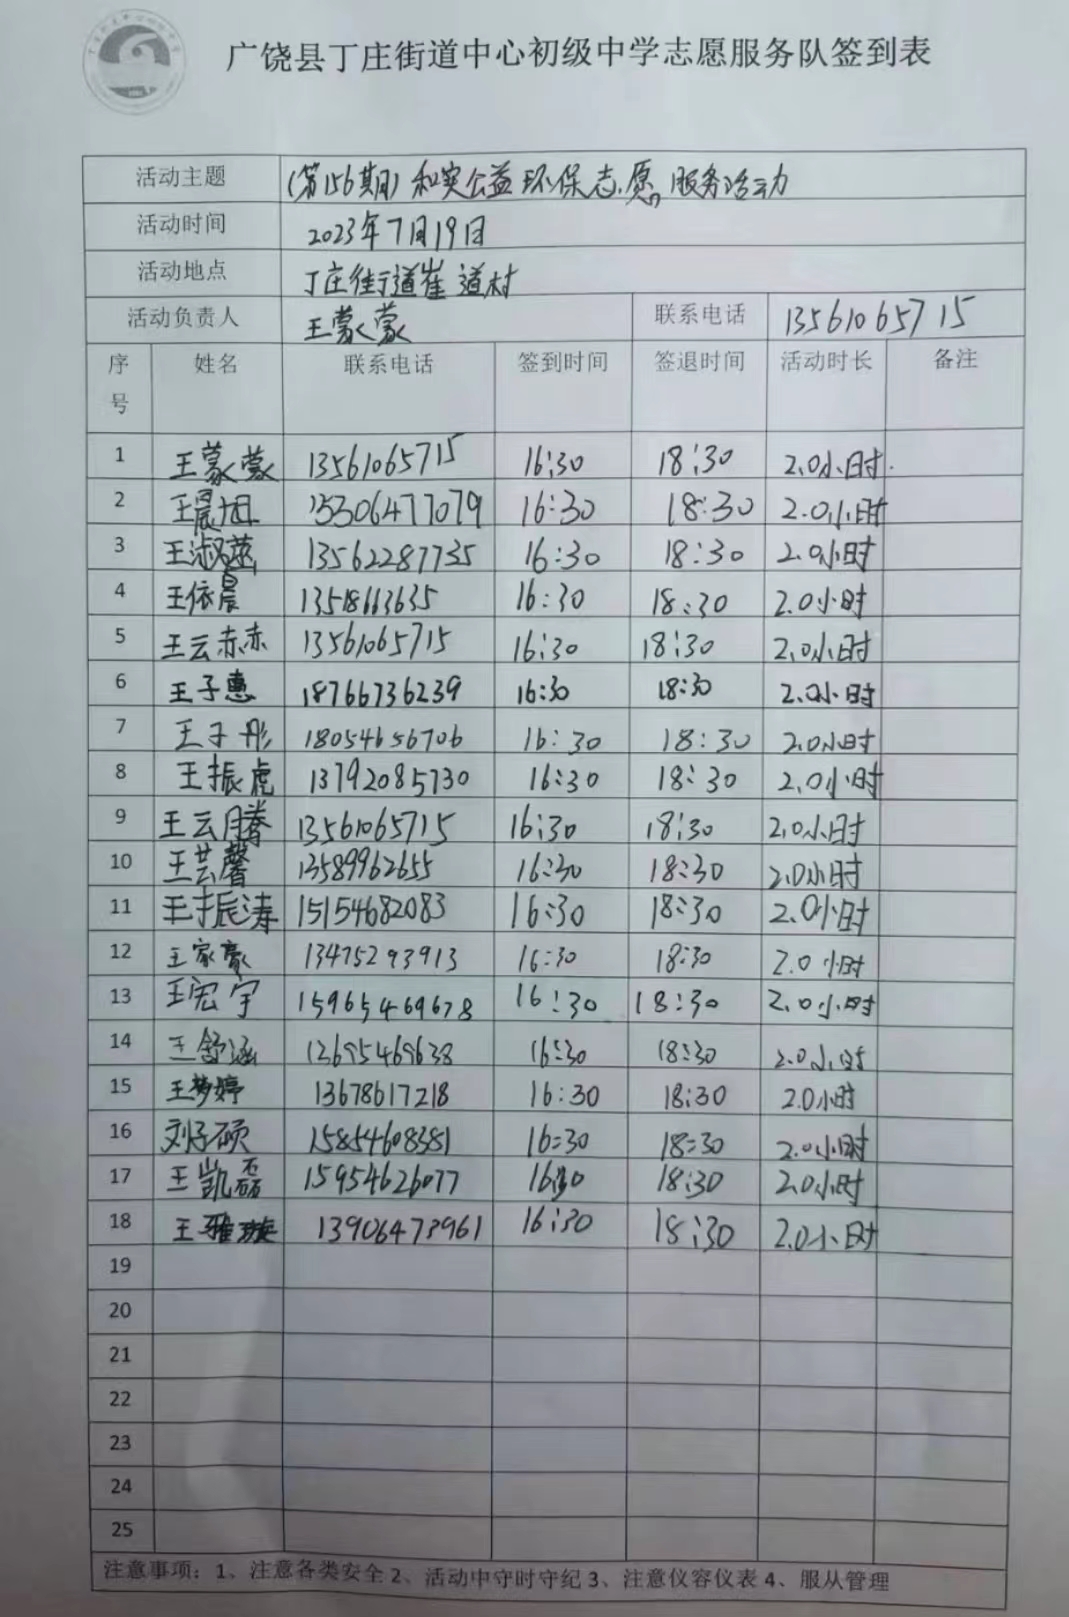 广饶县丁庄街道中心初级中学志愿服务队签到表
活动主题 (第156期)和实公益环保志愿服务活动
活动时间 2023年7月19日
活动地点 丁庄街道崔道村
活动负责人 王蒙蒙 联系电话 13561065715
序号 姓名 联系电话 签到时间 签退时间 活动时长 备注
1 王蒙蒙 13561065715 16:30 18:30 2.0小时.
2 王晨旭 15306477079 16:30 18:30 2.0小时
3 王淑燕 13562287735 16:30 18:30 2.0小时
4 王依晨 13518663635 16:30 18:30 2.0小时
5 王云赫 13561065715 16:30 18:30 2.0小时
6 王子惠 18766736239 16:30 18:30 2.0小时
7 王子彤 18054656706 16:30 18:30 2.0小时
8 王振虎 13792085730 16:30 18:30 2.0小时
9 王云腾 13561065715 16:30 18:30 2.0小时
10 王芸馨 13589962655 16:30 18:30 2.0小时
11 王振涛 15154682083 16:30 18:30 2.0小时
12 王家豪 13475293913 16:30 18:30 2.0小时
13 王宏宇 15965469678 16:30 18:30 2.0小时
14 王舒涵 13695469638 16:30 18:30 2.0小时
15 王梦婷 13678617218 16:30 18:30 2.0小时
16 刘子硕 15854608381 16:30 18:30 2.0小时
17 王凯磊 15954626077 16:30 18:30 2.0小时
18 王雅璇 13906473961 16:30 18:30 2.0小时
19
20
21
22
23
24
25
注意事项：1、注意各类安全 2、活动中守时守纪 3、注意仪容仪表 4、服从管理